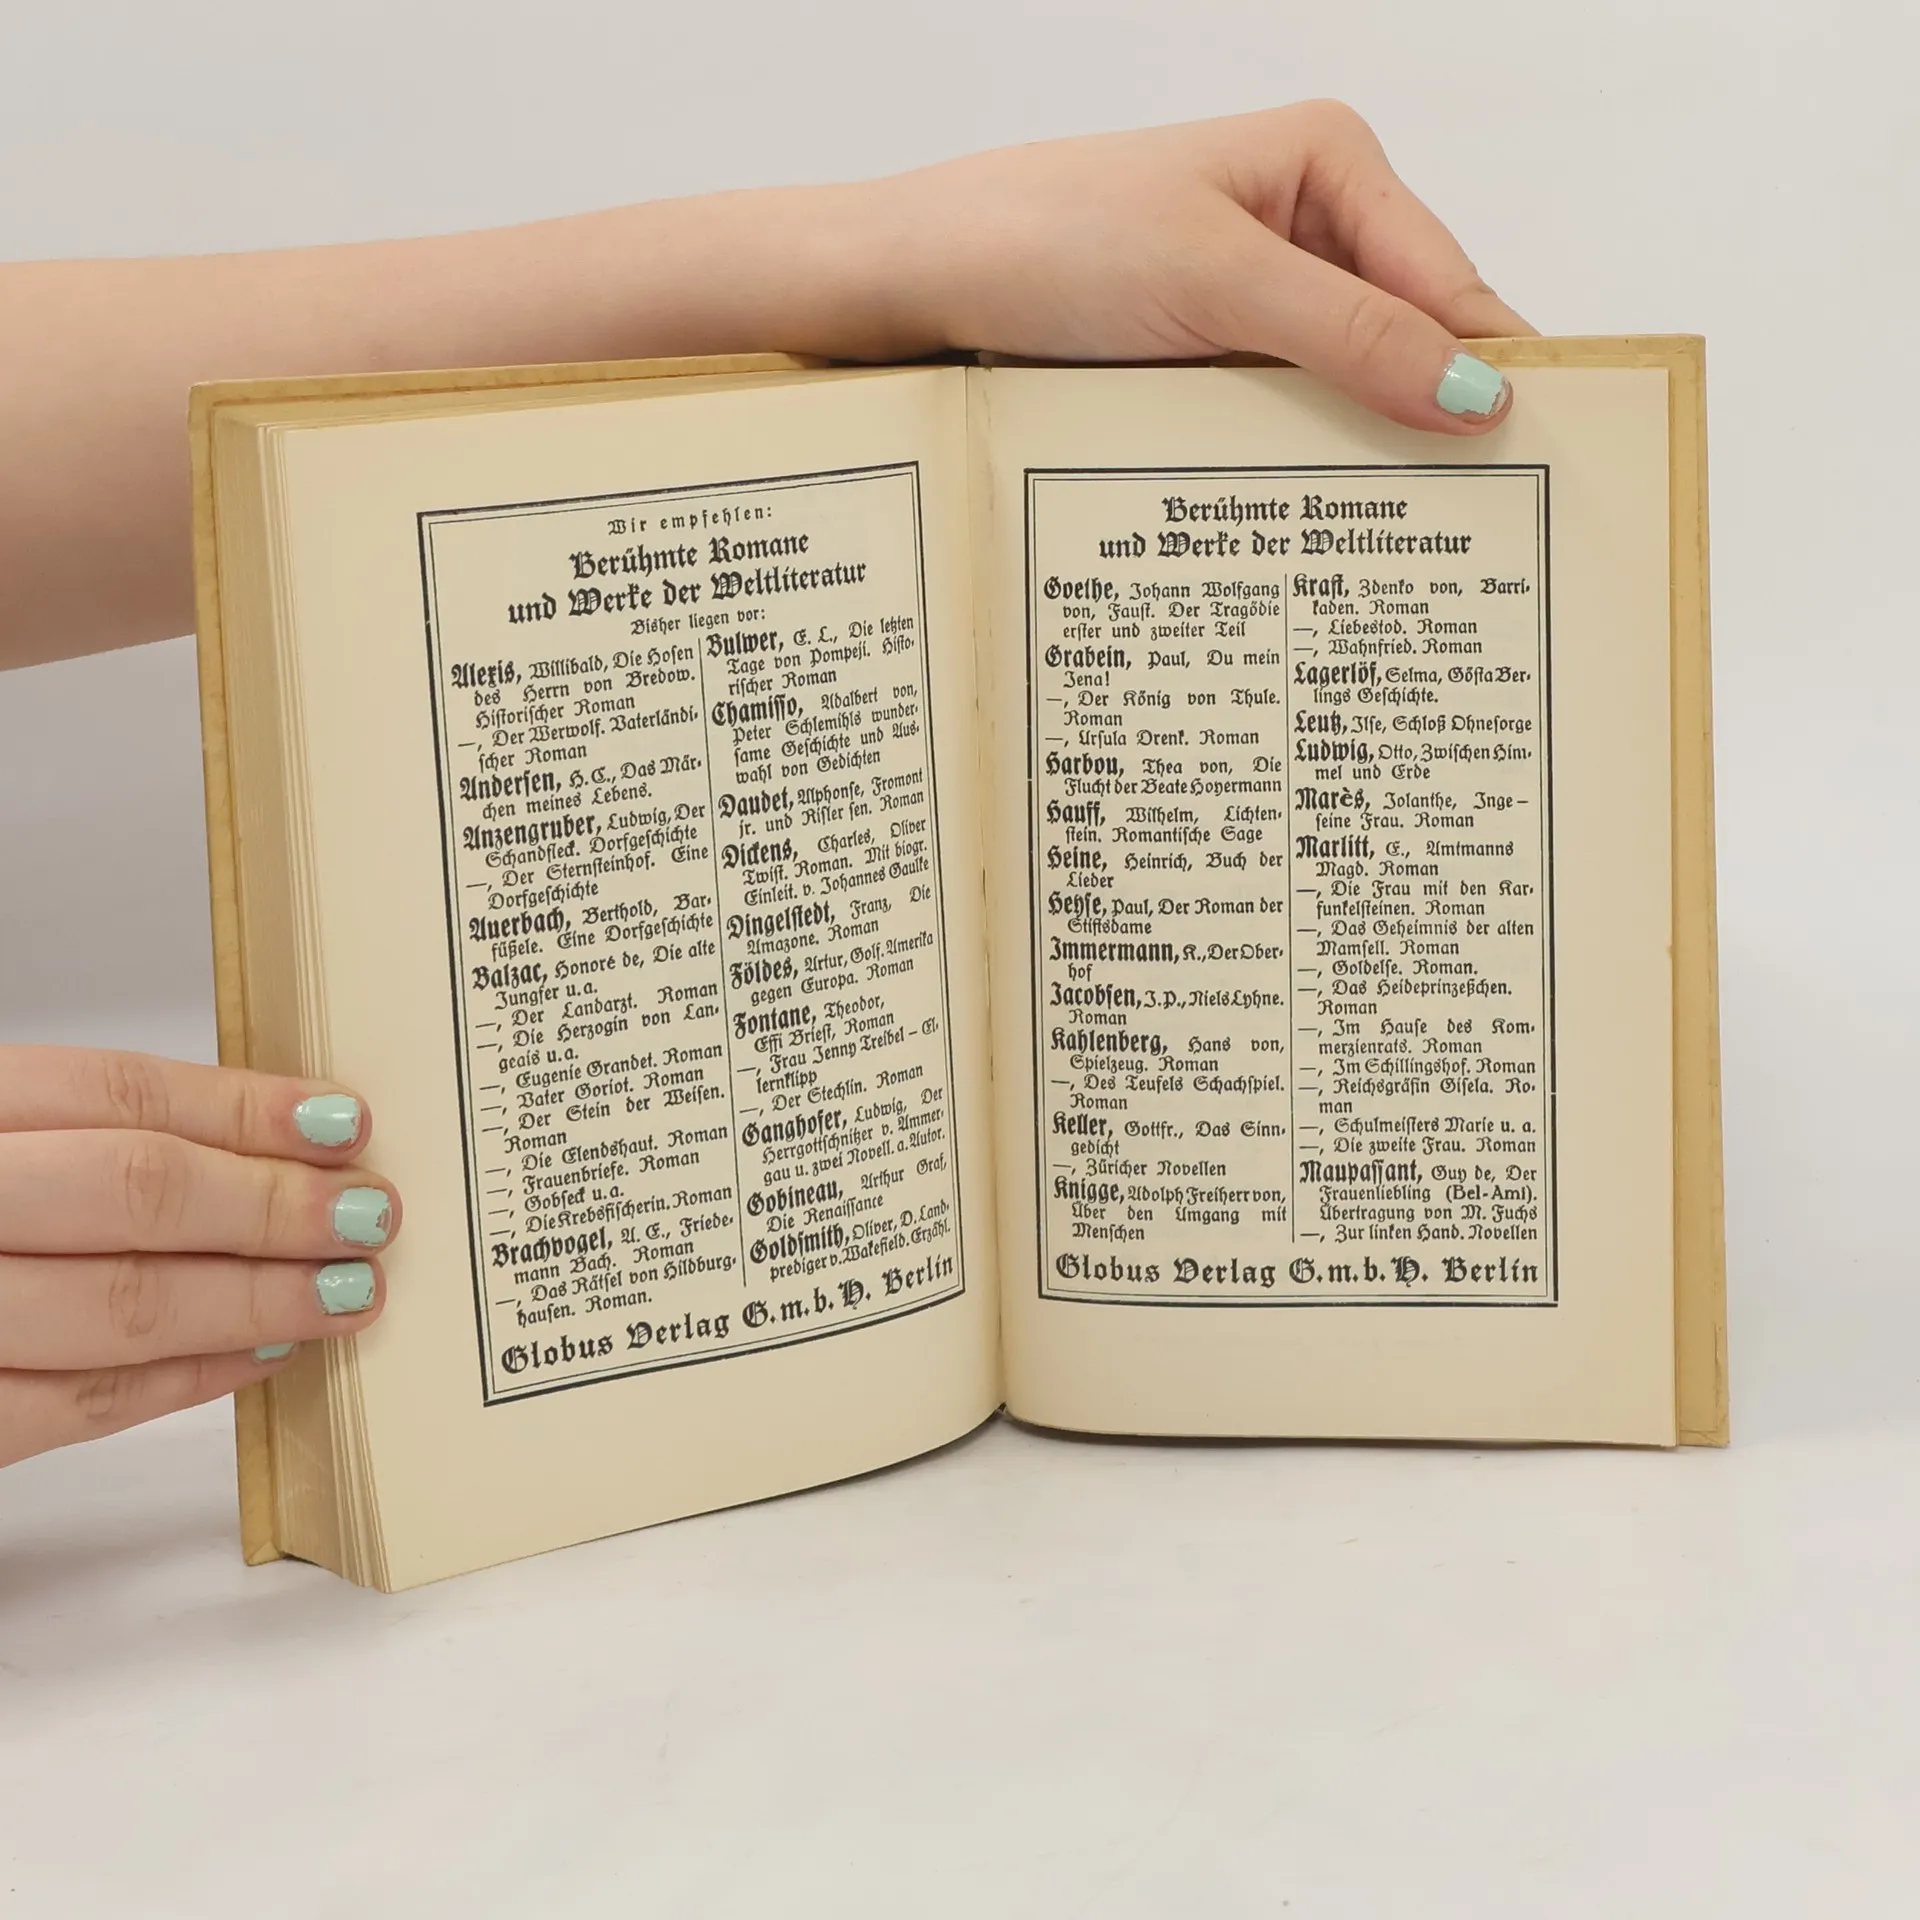 Wir empfehlen:
Berühmte Romane
und Werke der Weltliteratur
Bisher liegen vor:
Alexis, Willibald, Die Hosen
des Herrn von Bredow.
Historischer Roman
—, Der Werwolf. Vaterländi-
scher Roman
Andersen, H. C., Das Mär-
chen meines Lebens.
Anzengruber, Ludwig, Der
Schandfleck. Dorfgeschichte
—, Der Sternsteinhof. Eine
Dorfgeschichte
Auerbach, Berthold, Bar-
füßele. Eine Dorfgeschichte
Balzac, Honoré de, Die alte
Jungfer u. a.
—, Der Landarzt. Roman
—, Die Herzogin von Lan-
geais u. a.
—, Eugenie Grandet. Roman
—, Vater Goriot. Roman
—, Der Stein der Weisen.
Roman
—, Die Elendshaut. Roman
—, Frauenbriefe. Roman
—, Gobseck u. a.
—, Die Krebsfischerin. Roman
Brachvogel, A. E., Friede-
mann Bach. Roman
—, Das Rätsel von Hildburg-
hausen. Roman.
Bulwer, E. L., Die letzten
Tage von Pompeji. Histo-
rischer Roman
Chamisso, Adalbert von,
Peter Schlemihls wunder-
same Geschichte und Aus-
wahl von Gedichten
Daudet, Alphonse, Fromont
jr. und Risler sen. Roman
Dickens, Charles, Oliver
Twist. Roman. Mit biogr.
Einleit. v. Johannes Gaulke
Dingelstedt, Franz, Die
Amazone. Roman
Földes, Artur, Golf. Amerika
gegen Europa. Roman
Fontane, Theodor,
Effi Briest, Roman
—, Frau Jenny Treibel – El-
lernklipp
—, Der Stechlin. Roman
Ganghofer, Ludwig, Der
Herrgottschnitzer v. Ammer-
gau u. zwei Novell. a. Autor.
Gobineau, Arthur Graf,
Die Renaissance
Goldsmith, Oliver, D. Land-
prediger v. Wakefield. Erzähl.
Globus Verlag G. m. b. H. Berlin
Berühmte Romane
und Werke der Weltliteratur
Goethe, Johann Wolfgang
von, Faust. Der Tragödie
erster und zweiter Teil
Grabein, Paul, Du mein
Jena!
—, Der König von Thule.
Roman
—, Ursula Drenk. Roman
Harbou, Thea von, Die
Flucht der Beate Hoyermann
Hauff, Wilhelm, Lichten-
stein. Romantische Sage
Heine, Heinrich, Buch der
Lieder
Heyse, Paul, Der Roman der
Stiftsdame
Immermann, K., Der Ober-
hof
Jacobsen, J. P., Niels Lyhne.
Roman
Kahlenberg, Hans von,
Spielzeug. Roman
—, Des Teufels Schachspiel.
Roman
Keller, Gottfr., Das Sinn-
gedicht
—, Züricher Novellen
Knigge, Adolph Freiherr von,
Über den Umgang mit
Menschen
Kraft, Zdenko von, Barri-
kaden. Roman
—, Liebestod. Roman
—, Wahnfried. Roman
Lagerlöf, Selma, Gösta Ber-
lings Geschichte.
Leutz, Ilse, Schloß Ohnesorge
Ludwig, Otto, Zwischen Him-
mel und Erde
Marès, Jolanthe, Inge –
seine Frau. Roman
Marlitt, E., Amtmanns
Magd. Roman
—, Die Frau mit den Kar-
funkelsteinen. Roman
—, Das Geheimnis der alten
Mamsell. Roman
—, Goldelse. Roman.
—, Das Heideprinzeßchen.
Roman
—, Im Hause des Kom-
merzienrats. Roman
—, Im Schillingshof. Roman
—, Reichsgräfin Gisela. Ro-
man
—, Schulmeisters Marie u. a.
—, Die zweite Frau. Roman
Maupassant, Guy de, Der
Frauenliebling (Bel-Ami).
Übertragung von M. Fuchs
—, Zur linken Hand. Novellen
Globus Verlag G. m. b. H. Berlin